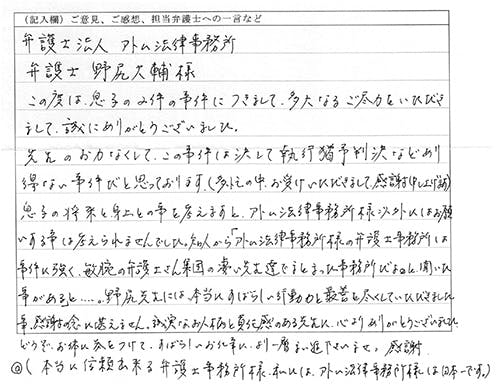 (記入欄)ご意見、ご感想、担当弁護士への一言など
弁護士法人 アトム法律事務所
弁護士 野尻大輔様
この度は、息子のみ件の事件につきまして、多大なるご尽力をいただき
まして、誠にありがとうございました。
先生のお力なくして、この事件は決して執行猶予判決などあり
得ない事件だと思っております。(多忙の中、お受けいただきまして、感謝申し上げます)
息子の将来と身上の事を考えますと、アトム法律事務所様以外にはお願
いする事は考えられませんでした。知人から「アトム法律事務所様の弁護士事務所は
事件に強く、敏腕の弁護士さん集団の凄い先生達でまとまった事務所だよ。」と、聞いた
事があると....。野尻先生には、本当にすばらしい行動力と最善を尽くしていただきました
事、感謝の念に堪えません。誠実なお人柄と責任感のある先生に、心よりありがとうございました
どうぞ、お体に気をつけて、すばらしいお仕事に、より一層まい進下さいませ。感謝
◎(本当に信頼出来る弁護士事務所様、私には、アトム法律事務所様は日本一です。)